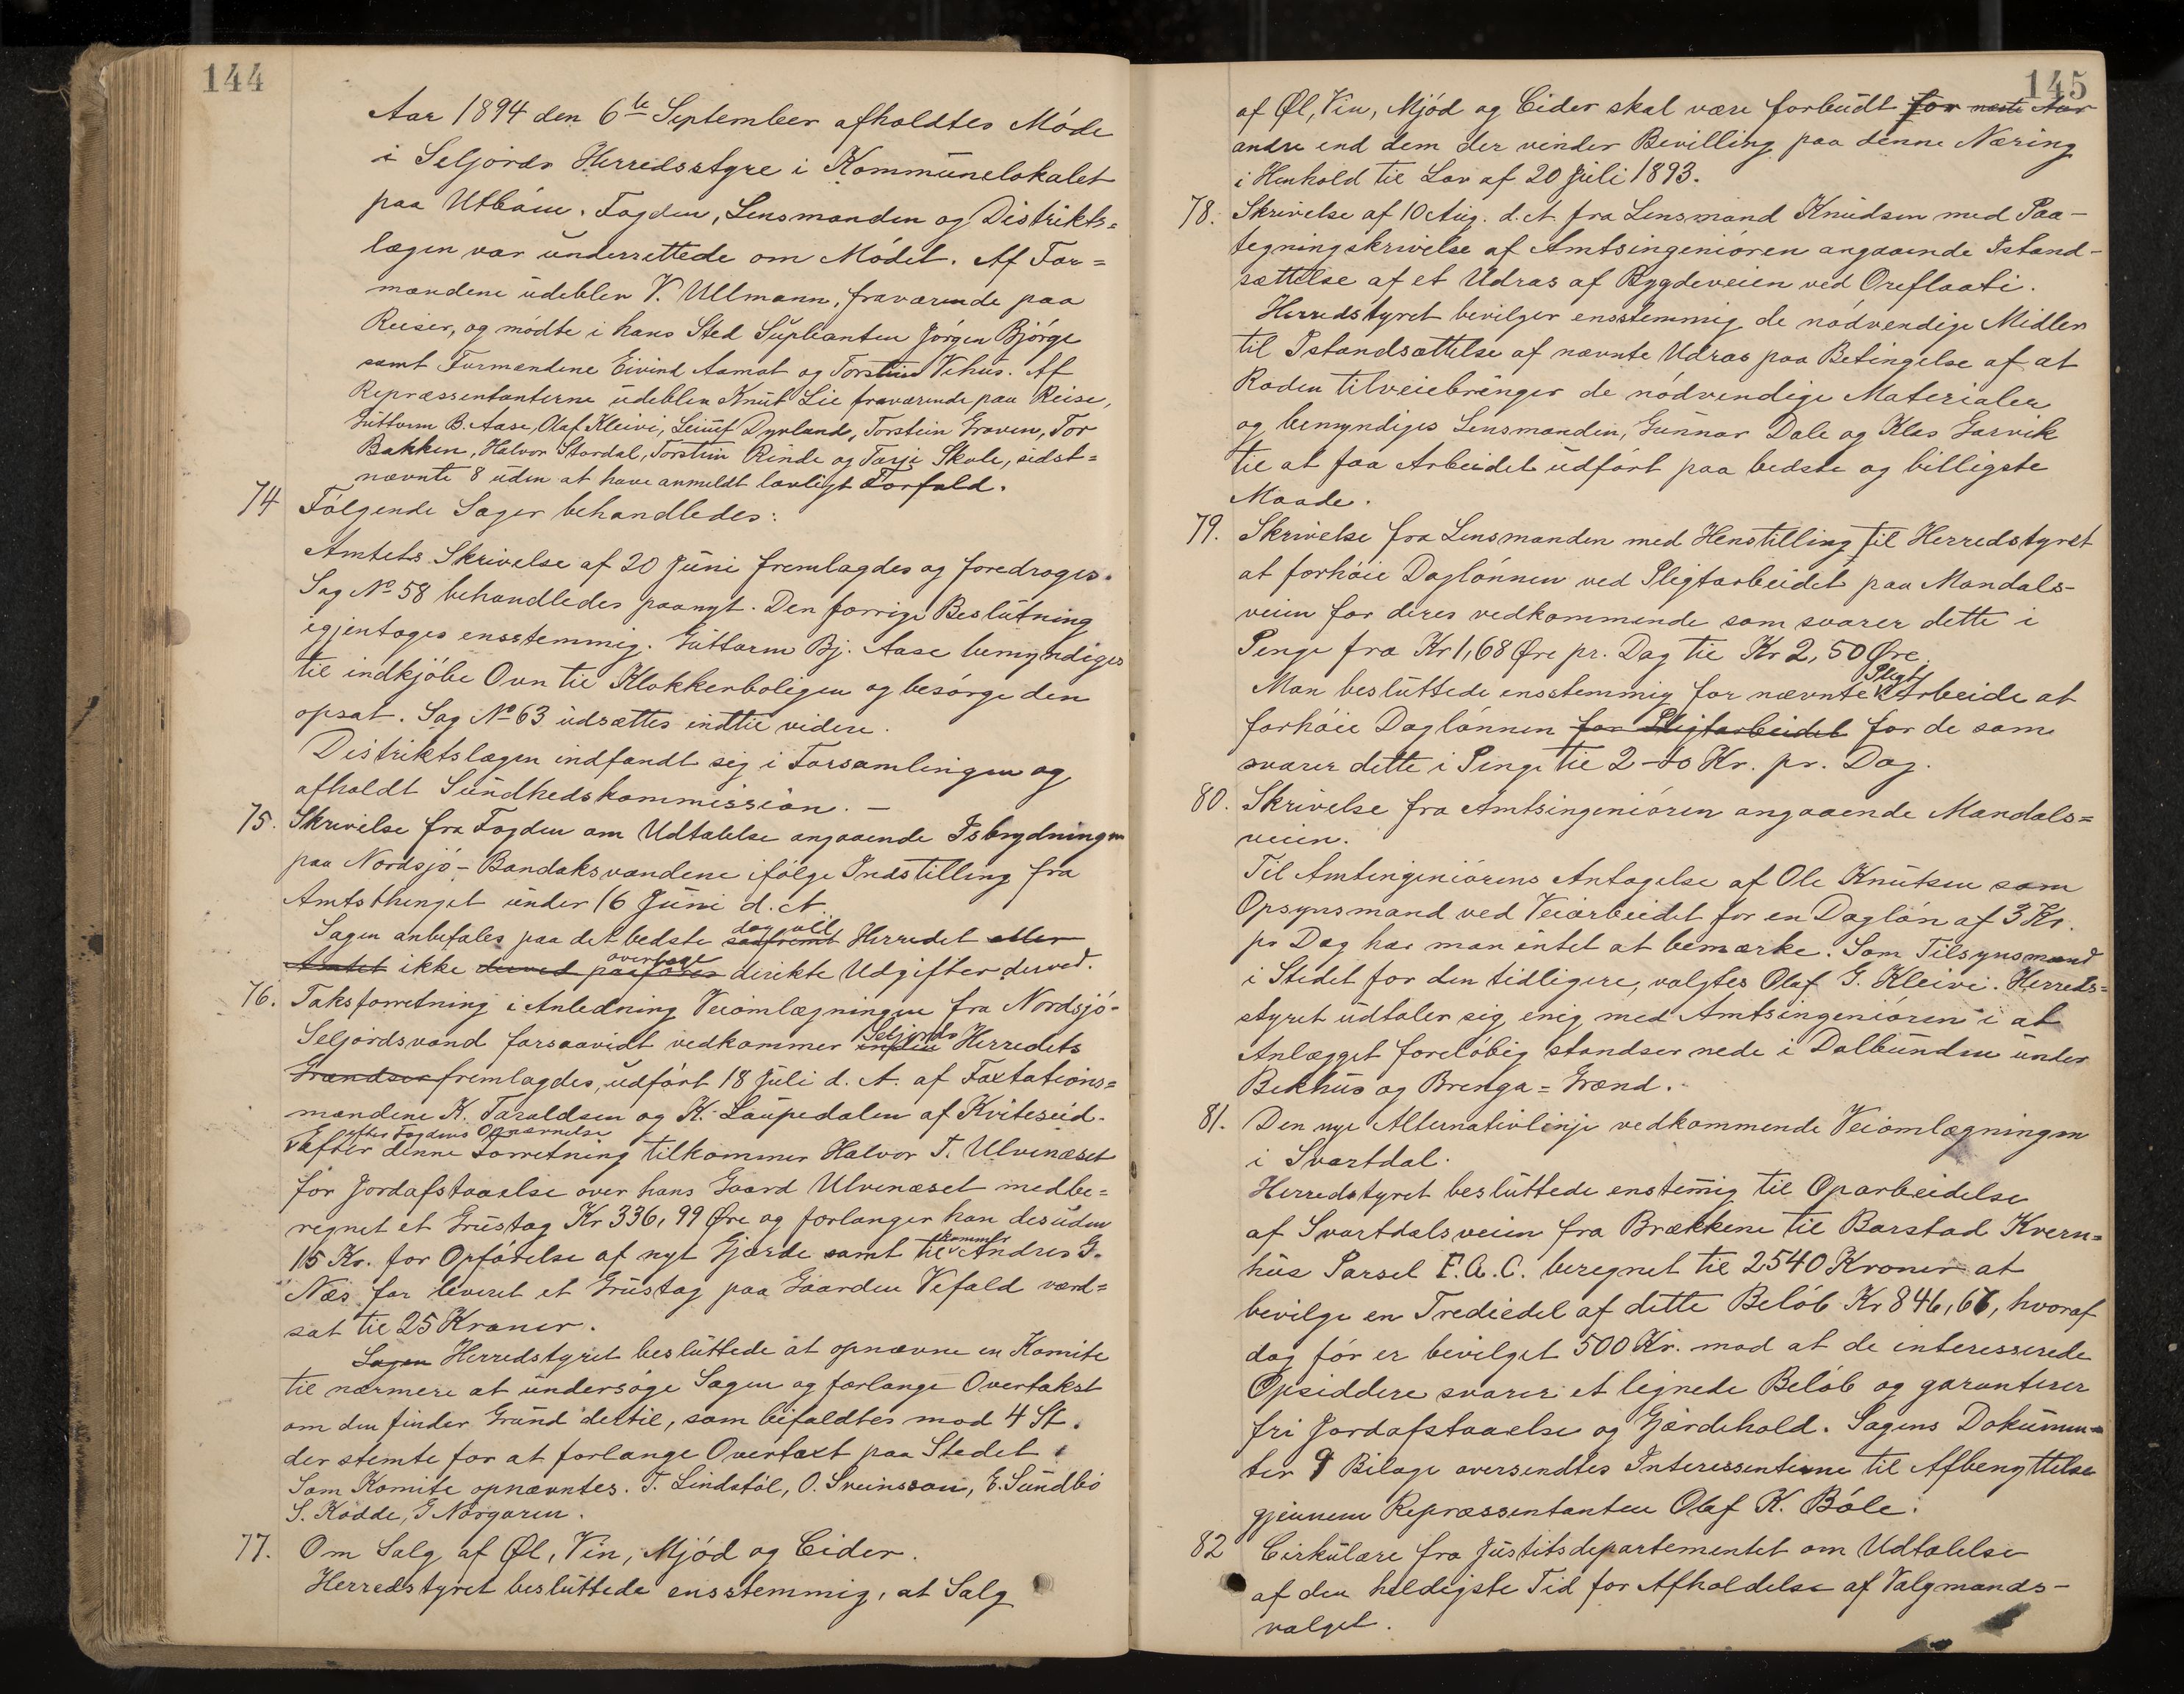 144
Aar 1894 den 6te September afholdtes Móde
i Seljords Herredsstyre i Kommunelokalet
paa Utbóen. Fogden, Lensmanden og Distrikts=
lægen var underrettede om Módet. Af For=
mændene udeblev V. Ullmann, fraværende paa
Reiser, og módte i hans Sted Supleanten Jórgen Bjórge
samt Formændene Eivind Aamot og Torstein Vehus. Af
Repræsentanterne udeblev Knut Lie fraværende paa Reise,
Guttorm B. Aase, Olaf Kleivi, Leiulf Dyrland, Torstein Graven, Tor
Bakken, Halvor Stordal, Torstein Rinde og Tarje Skole, sidst=
nævnte 8 uden at have anmeldt lovligt Forfald.
74 Fólgende Sager behandledes:
Amtets Skrivelse af 20 Juni fremlagdes og foredroges.
Sag No 58 behandledes paanyt. Den forrige Beslutning
igjentoges ensstemmig. Guttorm Bj. Aase bemyndiges
til indkjóbe Ovn til Klokkerboligen og besórge den
opsat. Sag No 63 udsættes indtil videre.
Distriktslægen indfandt sig i Forsamlingen og
afholdt Sundhedskommission. —
75. Skrivelse fra Fogden om Udtalelse angaaende Isbrydningen
paa Nordsjó-Bandaksvandene ifólge Indstilling fra
Amtsthinget under 16 Juni d. A.
Sagen anbefales paa det bedste saafremt dog vil Herredet eller
Amtet ikke derved paaføres overtage direkte Udgifter derved.
76. Taksforretning i Anledning Veiomlægningen fra Nordsjó-
Seljordsvand forsaavidt vedkommer inden Seljords Herredets
Grændser fremlagdes, udfórt 18 Juli d. A. af Taxtations=
mændene K. Taraldsen og K. Laupedalen af Kviteseid.
efter Fogdens Opnævnelse
Efter denne Forretning tilkommer Halvor T. Ulvenæset
for Jordafstaaelse over hans Gaard Ulvenæset medbe=
regnet et Grustag Kr 336,99 Øre og forlanger han desuden
15 Kr. for Opfórelse af nyt Gjærde samt tilkommer Andres G.
Næs for leveret et Grustag paa Gaarden Vefald værd=
sat til 25 Kroner.
Sagen Herredstyret besluttede at opnævne en Komite
til nærmere at undersóge Sagen og forlange Overtakst
om den finder Grund dertil, som bifaldtes mod 4 St.
der stemte for at forlange Overtaxt paa Stedet.
Som Komite opnævntes. T. Lindstól, O. Sveinsson, E. Sundbó
S. Kødde, G Norgaren.
77. Om Salg af Øl, Vin, Mjód og Cider.
Herredstyret besluttede ensstemmig, at Salg
145
af Øl, Vin, Mjód og Cider skal være forbudt for næste Aar
andre end dem der vinder Bevilling paa denne Næring
i Henhold til Lov af 20 Juli 1893.
78. Skrivelse af 10 Aug. d. A. fra Lensmand Knudsen med Paa-
tegningskrivelse af Amtsingenióren angaaende Istand-
sættelse af et Udras af Bygdeveien ved Oreflaati.
Herredstyret bevilger ensstemmig de nódvendige Midler
til Istandsættelse af nævnte Udras paa Betingelse af at
Roden tilveiebringer de nódvendige Materialer,
og bemyndiges Lensmanden, Gunnar Dale og Klas Garvik
til at faa Arbeidet udfórt paa bedste og billigste
Maade.
79. Skrivelse fra Lensmanden med Henstilling til Herredstyret
at forhóie Daglónnen ved Pligtarbeidet paa Mandals-
veien for deres vedkommende som svarer dette i
Penge fra Kr 1,68 Øre pr. Dag til Kr 2,50 Øre.
Man besluttede ensstemmig for nævnte Pligt Arbeide at
forhóie Daglónnen for Pligtarbeidet for de som
svarer dette i Penge til 2-to Kr. pr. Dag.
80. Skrivelse fra Amtsingenióren angaaende Mandals=
veien.
Til Amtingeniórens Antagelse af Ole Knutsen som
Opsynsmand ved Veiarbeidet for en Daglón af 3 Kr.
pr Dag har man intet at bemærke. Som Tilsynsmand
i Stedet for den tidligere, valgtes Olaf G. Kleivi. Herreds=
styret udtaler sig enig med Amtsingenióren i at
Anlægget forelóbig standser nede i Dalbunden under
Bekhus og Brenga=Grænd.
81. Den nye Alternativlinje vedkommende Veiomlægningen
i Svartdal.
Herredstyret besluttede enstemig til Oparbeidelse
af Svartdalsveien fra Brækkene til Barstad Kvern=
hus Parsel F. a. C. beregnet til 2540 Kroner at
bevilge en Trediedel af dette Belób Kr 846,67, hvoraf
dog fór er bevilget 500 Kr. mod at de interesserede
Opsiddere svarer et lignede Belób og garanterer
fri Jordafstaaelse og Gjærdehold. Sagens Dokumen=
ter 9 Bilage oversendtes Interessenterne til Afbenyttelse
gjennem Repræsentanten Olaf K. Bóle.
82 Cirkulære fra Justitsdepartementet om Udtalelse
af den heldigste Tid for Afholdelse af Valgmands-
valget.